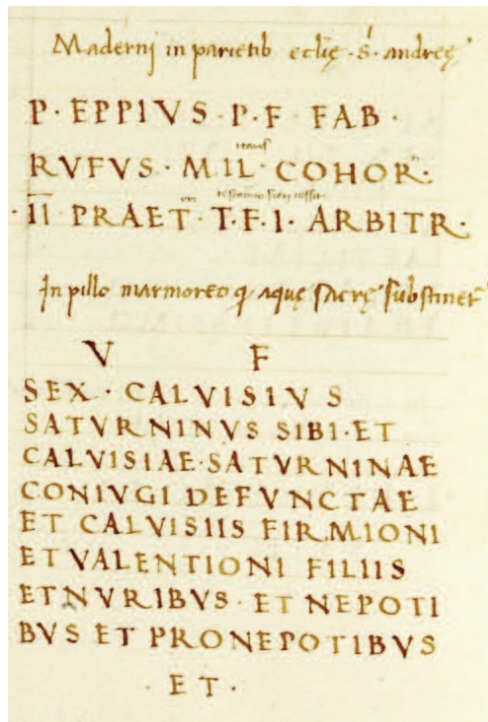 Maderni in parietib eclię · s · andreę
P · EPPIVS · P · F FAB ·
RVFVS · MIL · COHOR ·
· II PRAET · T · F · I · ARBITR ·
In pillo marmoreo q aquę sacrę substinet
V F
SEX · CALVISIVS
SATVRNINVS SIBI · ET
CALVISIAE · SATVRNINAE
CONIVGI DEFVNCTAE
ET CALVISIIS FIRMIONI
ET VALENTIONI FILIIS
ET NVRIBVS · ET NEPOTI
BVS ET PRONEPOTIBVS
· ET ·